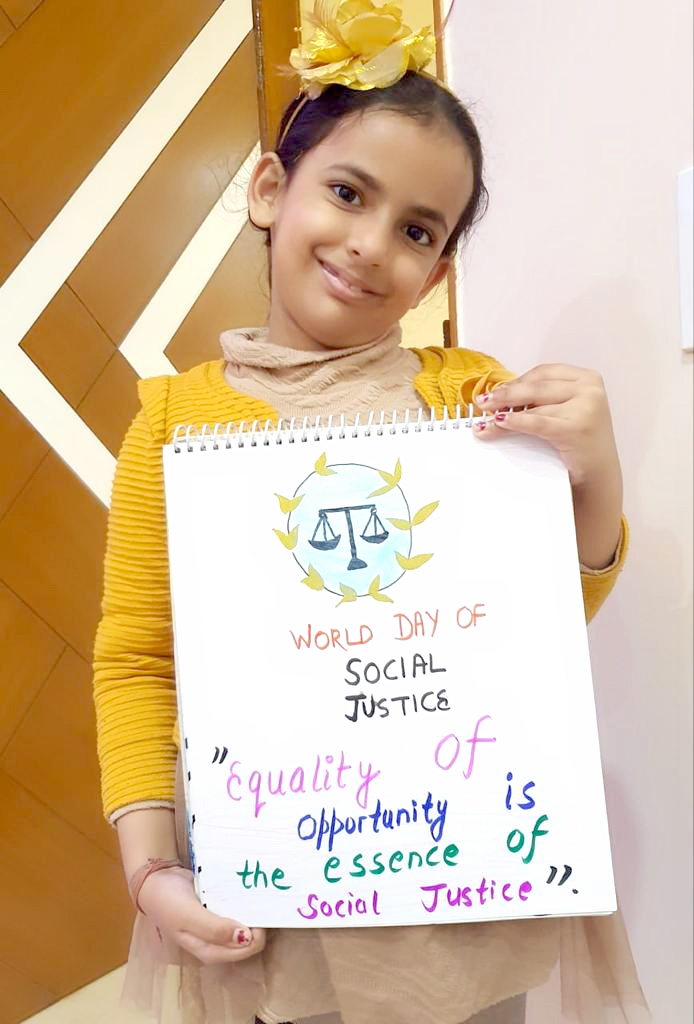 WORLD DAY OF
SOCIAL
JUSTICE
"Equality Of
Opportunity is
the essence of
Social Justice".